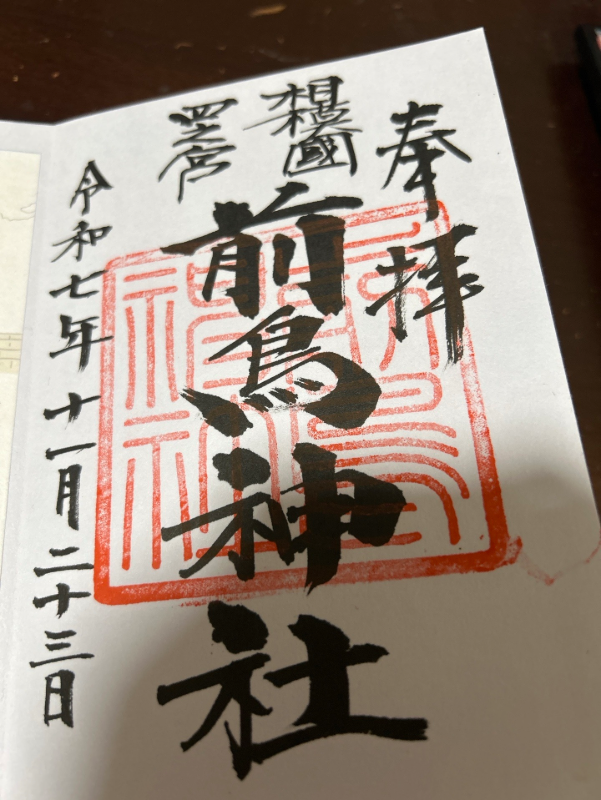 奉拝
相模國
四之宮
前鳥神社
令和七年十一月二十三日